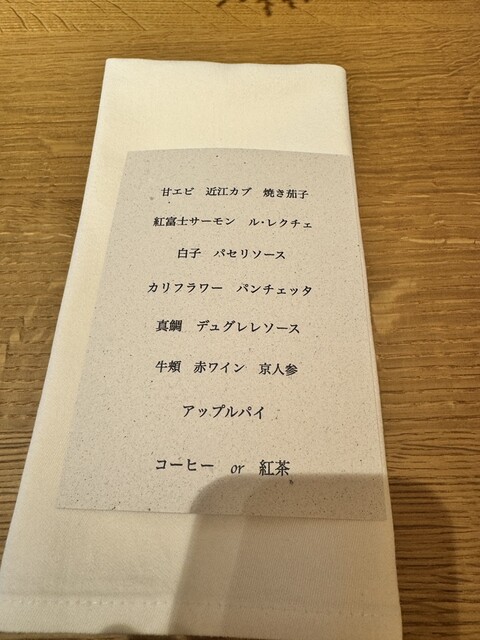 甘エビ　近江カブ　焼き茄子
紅富士サーモン　ル・レクチェ
白子　パセリソース
カリフラワー　パンチェッタ
真鯛　デュグレレソース
牛頬　赤ワイン　京人参
アップルパイ
コーヒー　or　紅茶